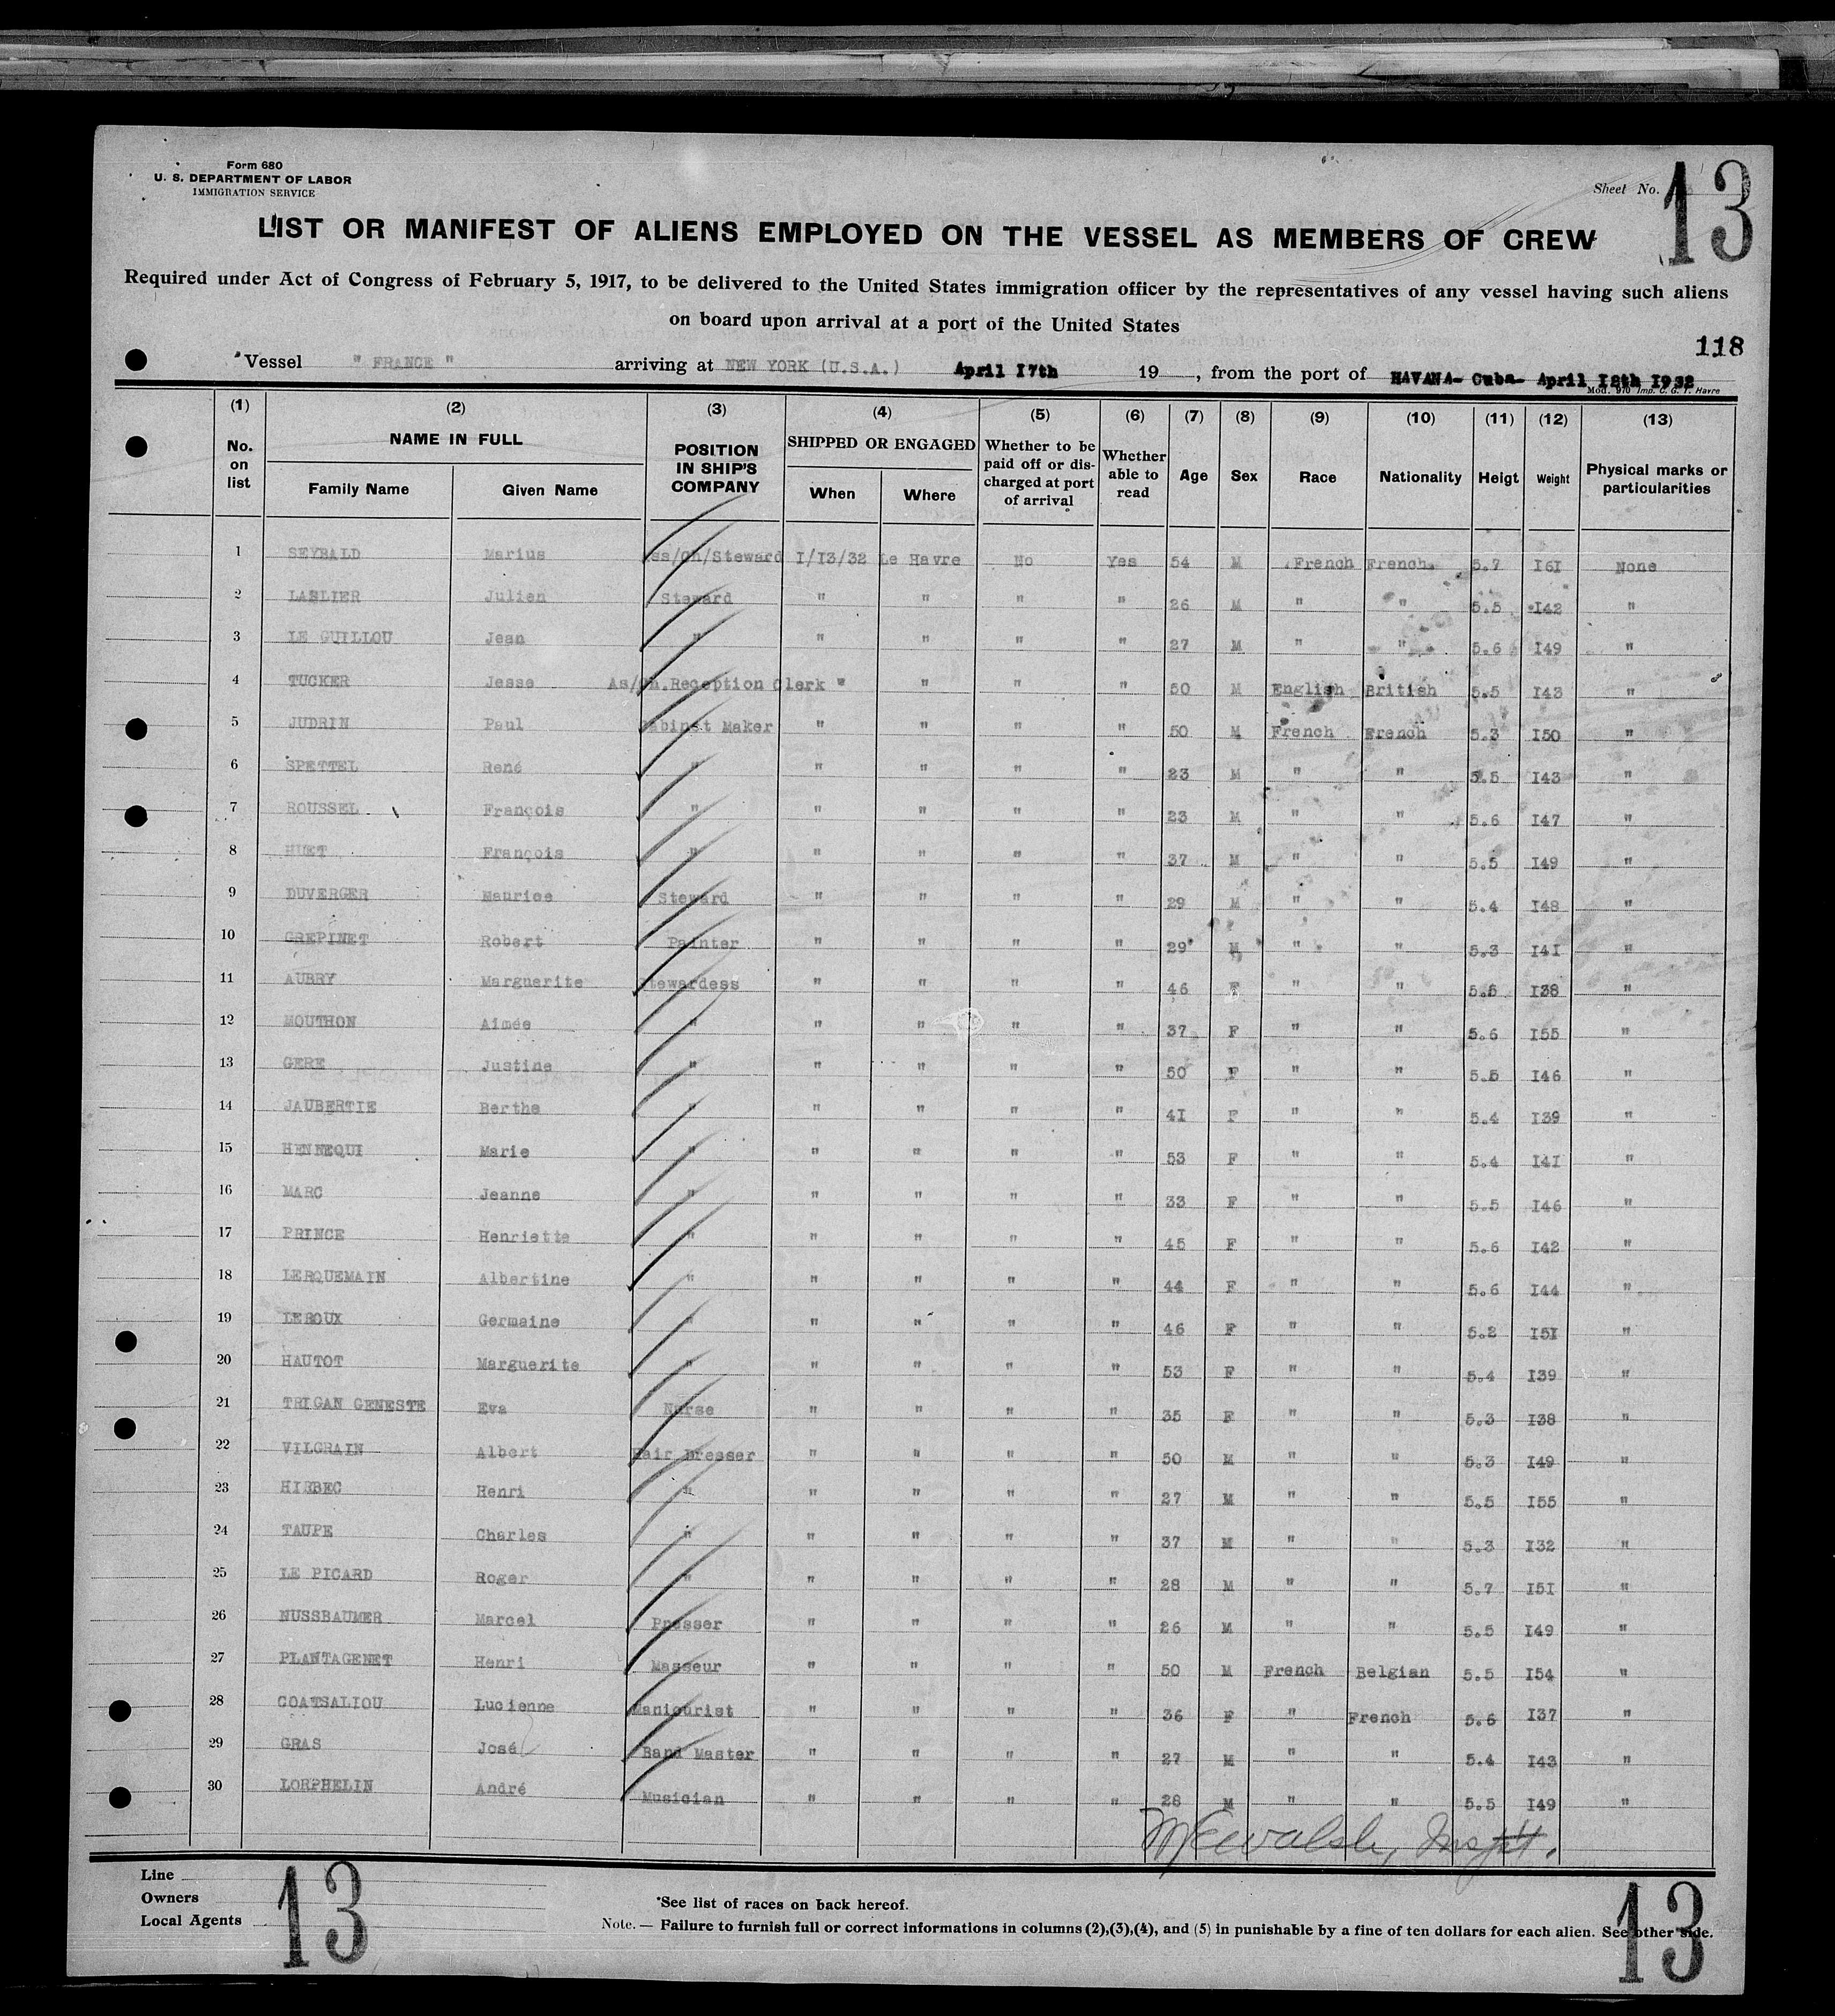 Form 680
U. S. DEPARTMENT OF LABOR
IMMIGRATION SERVICE
Sheet No. 13
LIST OR MANIFEST OF ALIENS EMPLOYED ON THE VESSEL AS MEMBERS OF CREW
Required under Act of Congress of February 5, 1917, to be delivered to the United States immigration officer by the representatives of any vessel having such aliens
on board upon arrival at a port of the United States
118
Vessel " FRANCE " arriving at NEW YORK (U.S.A.) April I7th 19 , from the port of HAVANA- Cuba- April I2th I932
Mod. 970 Imp. C. G. T. Havre
(1) (2) (3) (4) (5) (6) (7) (8) (9) (10) (11) (12) (13)
No. on list NAME IN FULL Family Name Given Name POSITION IN SHIP'S COMPANY SHIPPED OR ENGAGED When Where Whether to be paid off or discharged at port of arrival Whether able to read Age Sex Race Nationality Heigt Weight Physical marks or particularities
1 SEYBALD Marius Ass/Ch/Steward I/I3/32 Le Havre No Yes 54 M French French 5.7 I6I None
2 LASLIER Julien Steward " " " " 26 M " " 5.5 I42 "
3 LE GUILLOU Jean " " " " " 27 M " " 5.6 I49 "
4 TUCKER Jesse As/Ch.Reception Clerk " " " " 50 M English British 5.5 I43 "
5 JUDRIN Paul Cabinet Maker " " " " 50 M French French 5.3 I50 "
6 SPETTEL René " " " " " 23 M " " 5.5 I43 "
7 ROUSSEL François " " " " " 23 M " " 5.6 I47 "
8 HUET François " " " " " 37 M " " 5.5 I49 "
9 DUVERGER Maurice Steward " " " " 29 M " " 5.4 I48 "
10 GREPINET Robert Painter " " " " 29 M " " 5.3 I4I "
11 AUBRY Marguerite Stewardess " " " " 46 F " " 5.6 I38 "
12 MOUTHON Aimée " " " " " 37 F " " 5.6 I55 "
13 GERE Justine " " " " " 50 F " " 5.5 I46 "
14 JAUBERTIE Berthe " " " " " 4I F " " 5.4 I39 "
15 HENNEQUI Marie " " " " " 53 F " " 5.4 I4I "
16 MARC Jeanne " " " " " 33 F " " 5.5 I46 "
17 PRINCE Henriette " " " " " 45 F " " 5.6 I42 "
18 LERQUEMAIN Albertine " " " " " 44 F " " 5.6 I44 "
19 LEROUX Germaine " " " " " 46 F " " 5.2 I5I "
20 HAUTOT Marguerite " " " " " 53 F " " 5.4 I39 "
21 TRIGAN GENESTE Eva Nurse " " " " 35 F " " 5.3 I38 "
22 VILGRAIN Albert Hair Dresser " " " " 50 M " " 5.3 I49 "
23 HIEBEC Henri " " " " " 27 M " " 5.5 I55 "
24 TAUPE Charles " " " " " 37 M " " 5.3 I32 "
25 LE PICARD Roger " " " " " 28 M " " 5.7 I5I "
26 NUSSBAUMER Marcel Presser " " " " 26 M " " 5.5 I49 "
27 PLANTAGENET Henri Masseur " " " " 50 M French Belgian 5.5 I54 "
28 COATSALIOU Lucienne Manicurist " " " " 36 F " French 5.6 I37 "
29 GRAS José Band Master " " " " 27 M " " 5.4 I43 "
30 LORPHELIN André Musician " " " " 28 M " " 5.5 I49 "
Line
Owners
Local Agents
13
*See list of races on back hereof.
Note. — Failure to furnish full or correct informations in columns (2),(3),(4), and (5) in punishable by a fine of ten dollars for each alien. See other side.
13